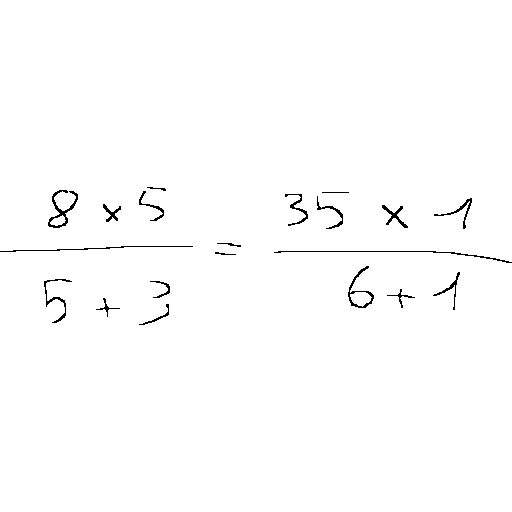 8 × 5 / 5 + 3 = 35 × 1 / 6 + 1